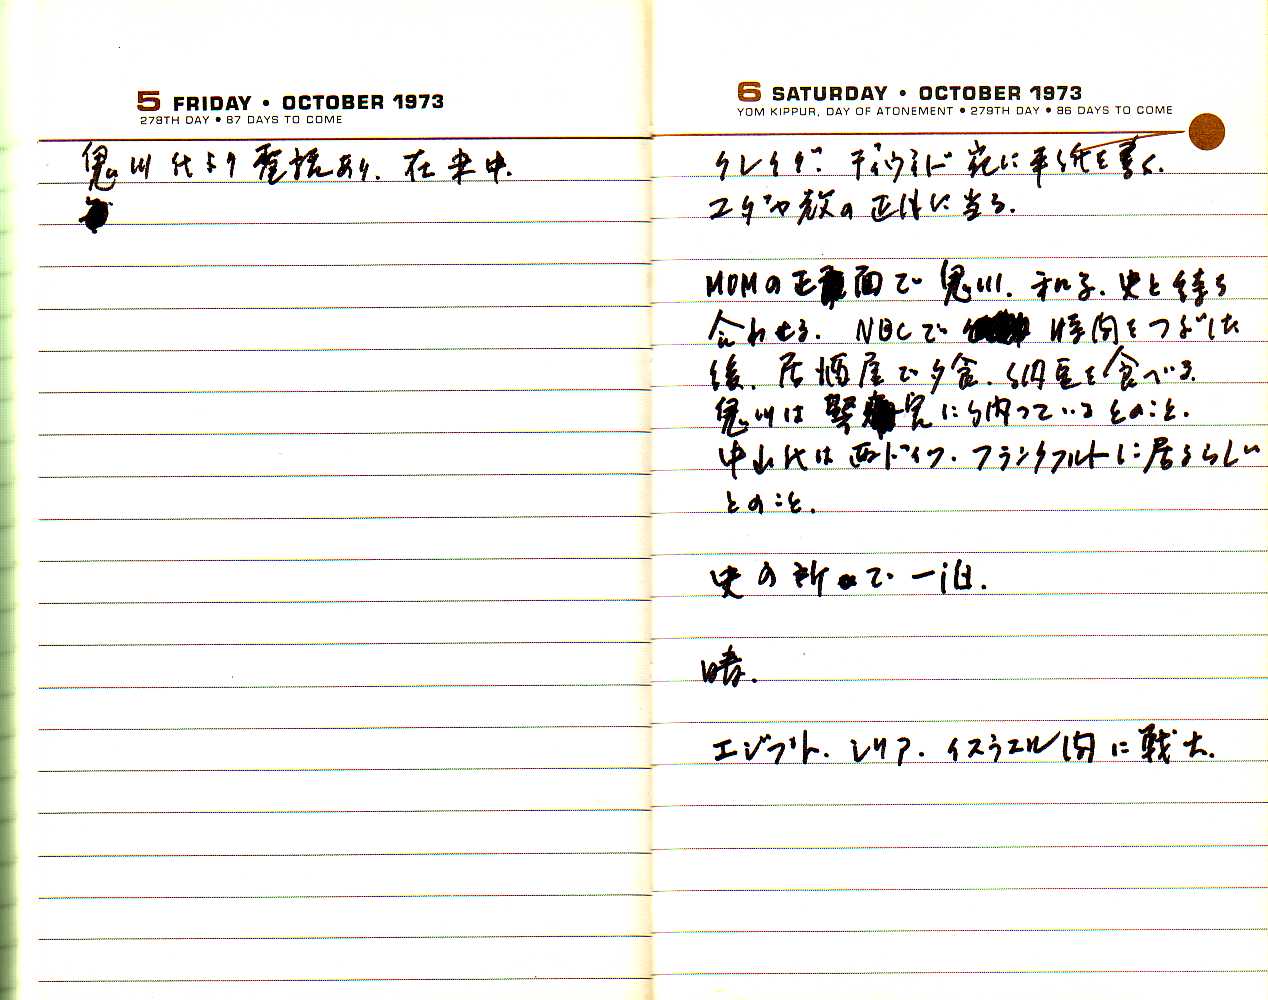 5 FRIDAY • OCTOBER 1973
278TH DAY • 87 DAYS TO COME
鬼川代より電話あり、在米中.
6 SATURDAY • OCTOBER 1973
YOM KIPPUR, DAY OF ATONEMENT • 279TH DAY • 86 DAYS TO COME
クレイグ、デイヴィド宛に手紙を書く.
ユダヤ教の正月に当る.
MOMの正面で鬼川、和子、史と待ち
合わせる. NBCで時間をつぶした
後、居酒屋で夕食、納豆を食べる.
鬼川は に内っているとのこと.
中山代は西ドイツ、フランクフルトに居るらしい
とのこと.
史の所で一泊.
晴.
エジプト、シリア、イスラエル間に戦火.